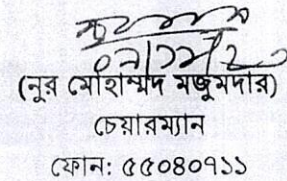 (নূর মোহাম্মদ মজুমদার)
চেয়ারম্যান
ফোন: ৫৫০৪০৭১১